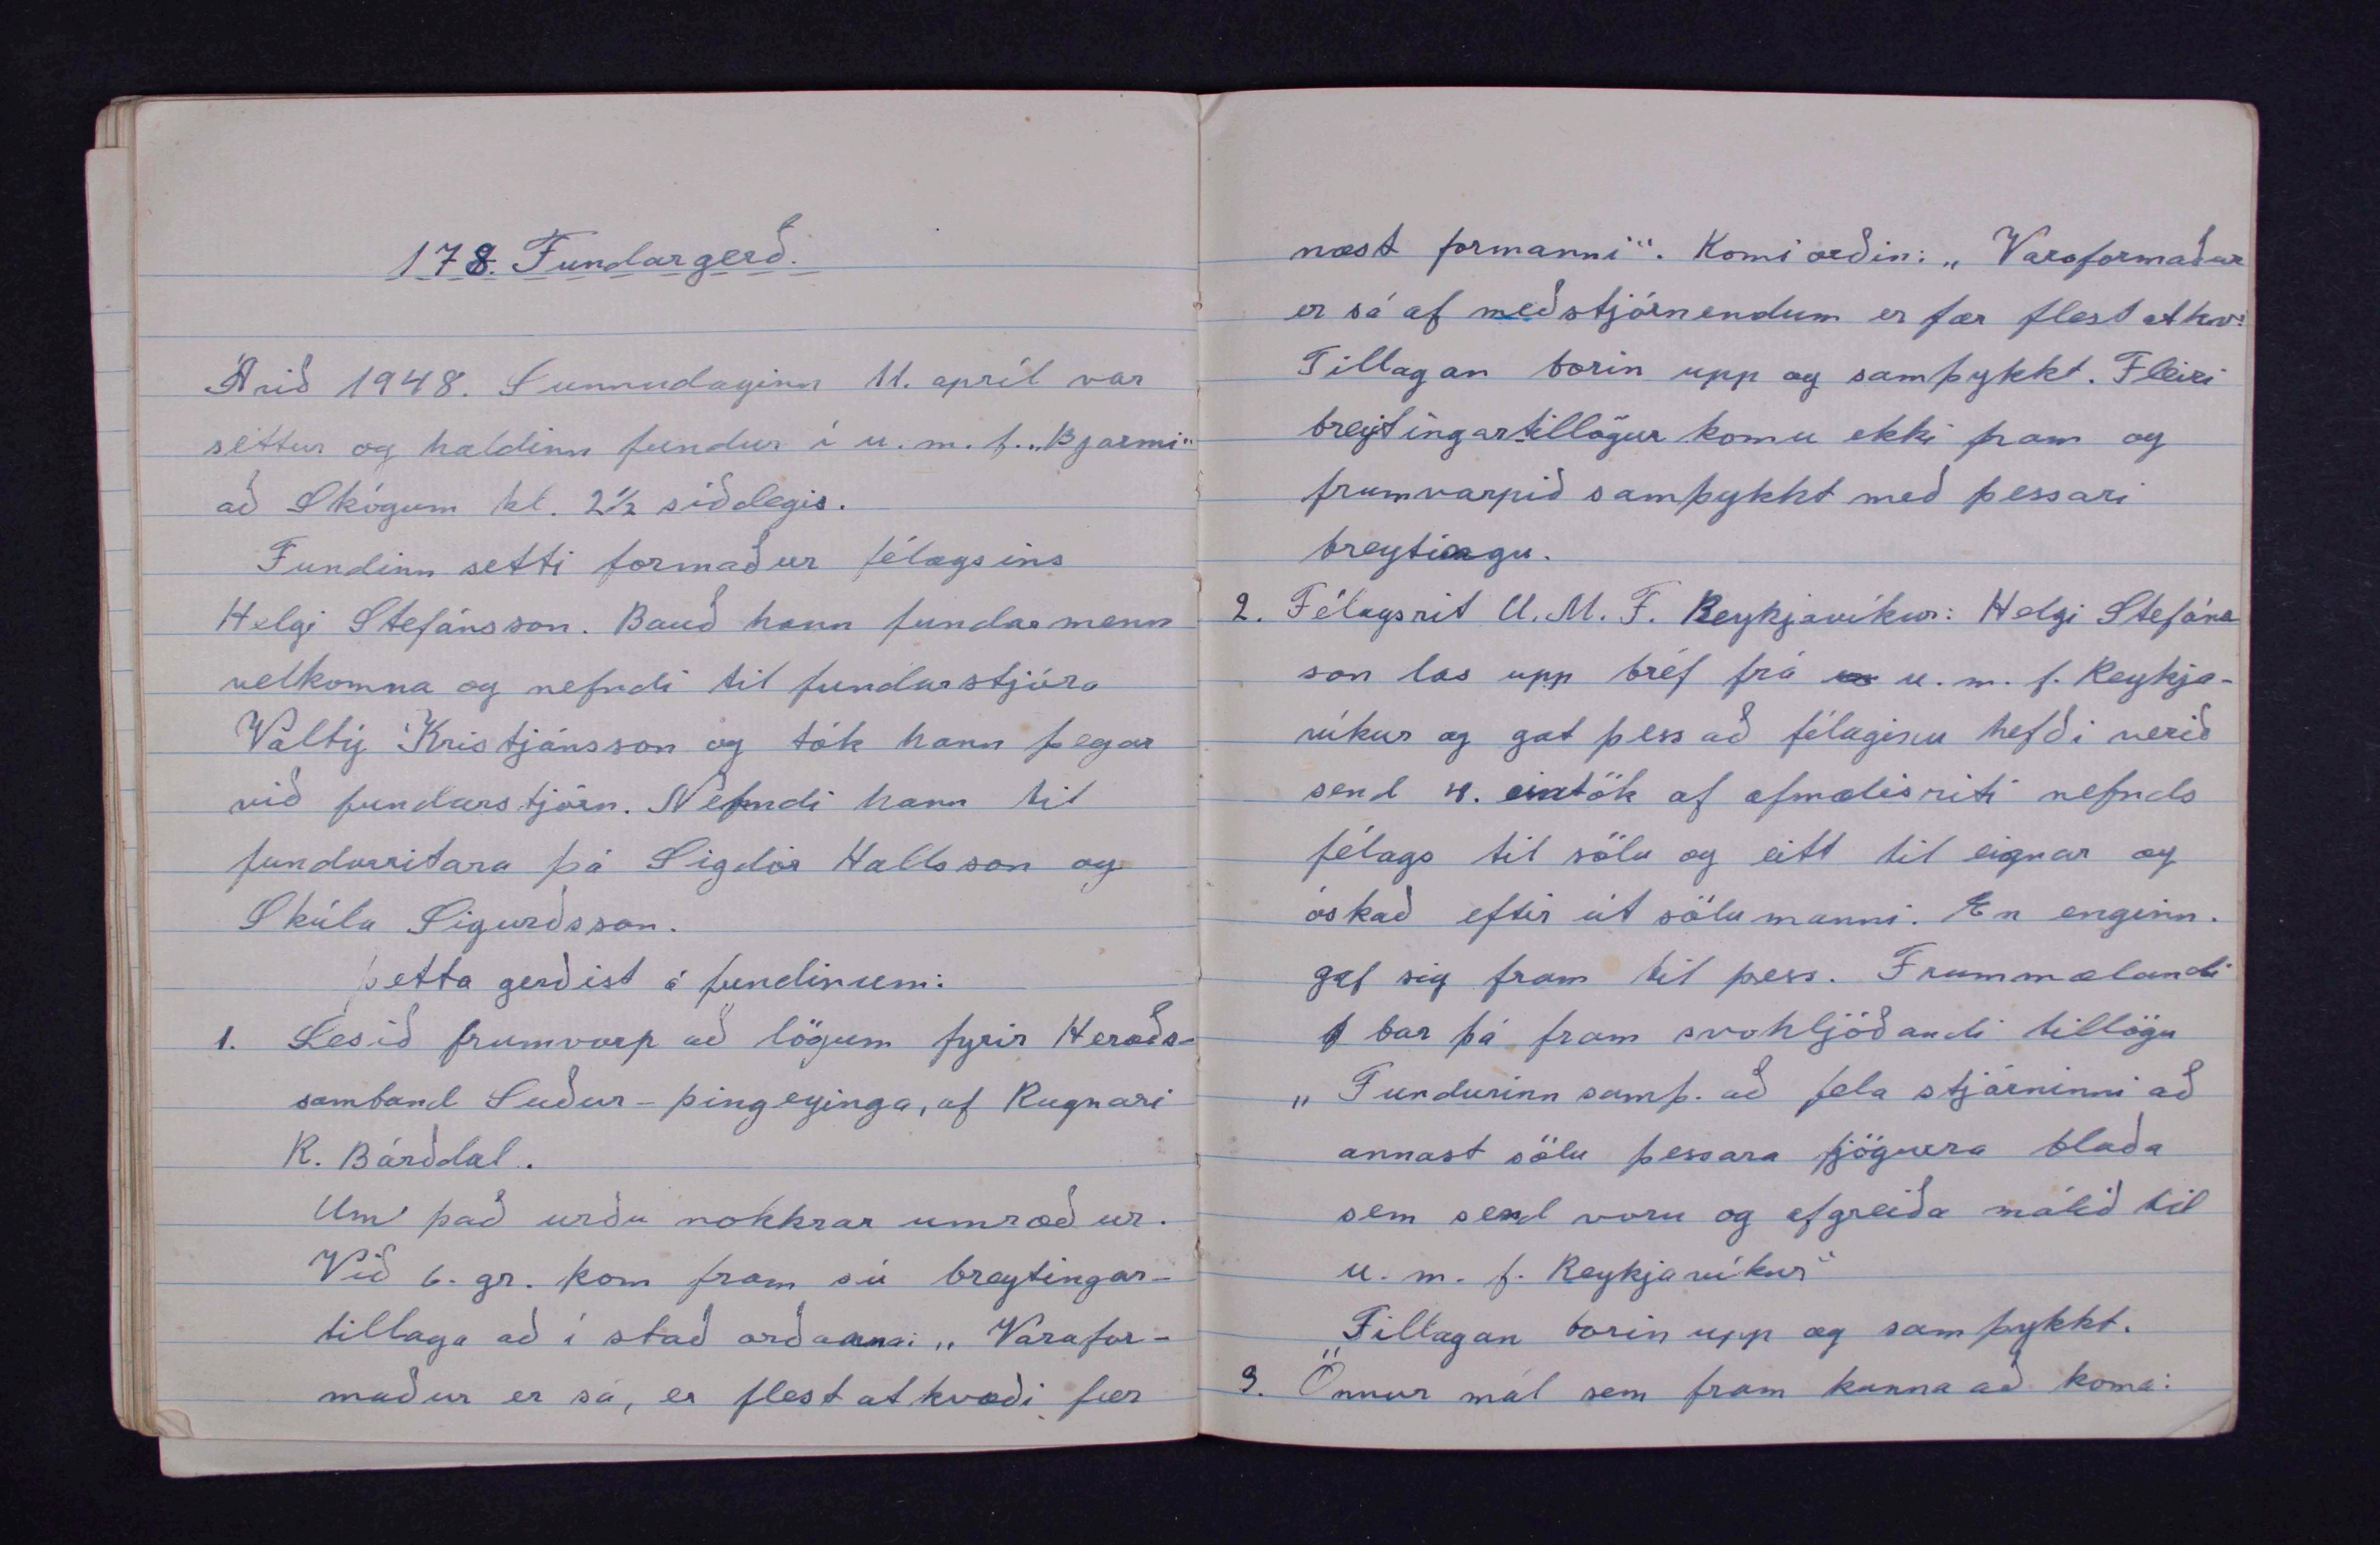 178. Fundargerð.
Árið 1948. Sunnudaginn 11. apríl var
settur og haldinn fundur í u. m. f. „Bjarmi"
að Skógum kl. 2½ síðdegis.
Fundinn setti formaður félagsins
Helgi Stefánsson. Bauð hann fundarmenn
velkomna og nefndi til fundarstjóra
Valtý Kristjánsson og tók hann þegar
við fundarstjórn. Nefndi hann til
fundarritara þá Sigdór Hallsson og
Skúla Sigurðsson.
Þetta gerðist á fundinum:
1. Lesið frumvarp að lögum fyrir Héraðs-
samband Suður-þingeyinga, af Ragnari
R. Bárðdal.
Um það urðu nokkrar umræður.
Við 6. gr. kom fram sú breytingar-
tillaga að í stað orðanna: „Varafor-
maður er sá, er flest atkvæði fær
næst formanni". Komi orðin: „Varaformaður
er sá af meðstjórnendum er fær flest atkv."
Tillagan borin upp og samþykkt. Fleiri
breytingartillögur komu ekki fram og
frumvarpið samþykkt með þessari
breytingu.
2. Félagsrit U. M. F. Reykjavíkur: Helgi Stefáns
son las upp bréf frá u. m. f. Reykja-
víkur og gat þess að félaginu hefði verið
send 4. eintök af afmælisriti nefnds
félags til sölu og eitt til eignar og
óskað eftir út sölumanni. En enginn.
gaf sig fram til þess. Frummælandi
bar þá fram svohljóðandi tillögu
„Fundurinn samþ. að fela stjórninni að
annast sölu þessara fjögurra blaða
sem send voru og afgreiða málið til
u. m. f. Reykjavíkur"
Tillagan borin upp og samþykkt.
3. Önnur mál sem fram kunna að koma: